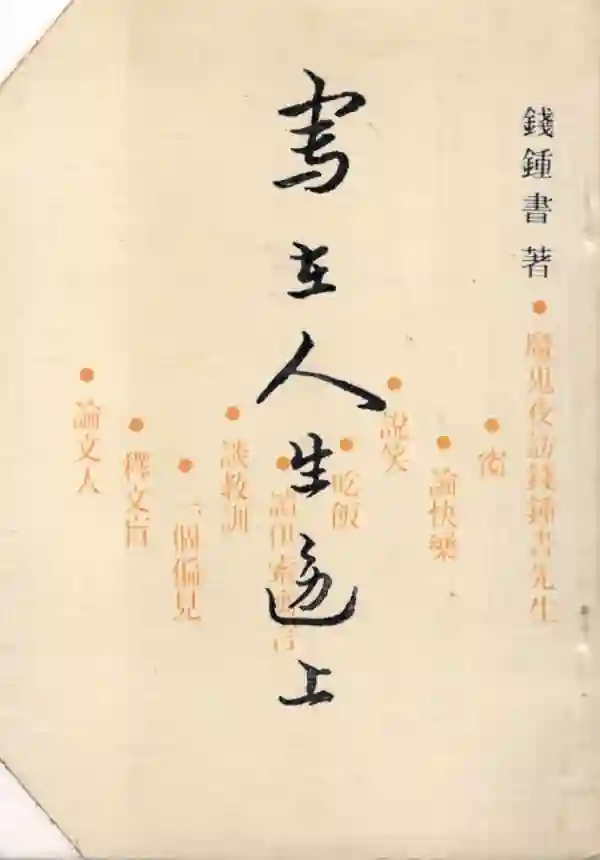 錢鍾書 著
寫在人生邊上
● 魔鬼夜訪錢鍾書先生
● 窗
● 論快樂
● 說笑
● 吃飯
● 讀伊索寓言
● 談教訓
● 一個偏見
● 釋文盲
● 論文人